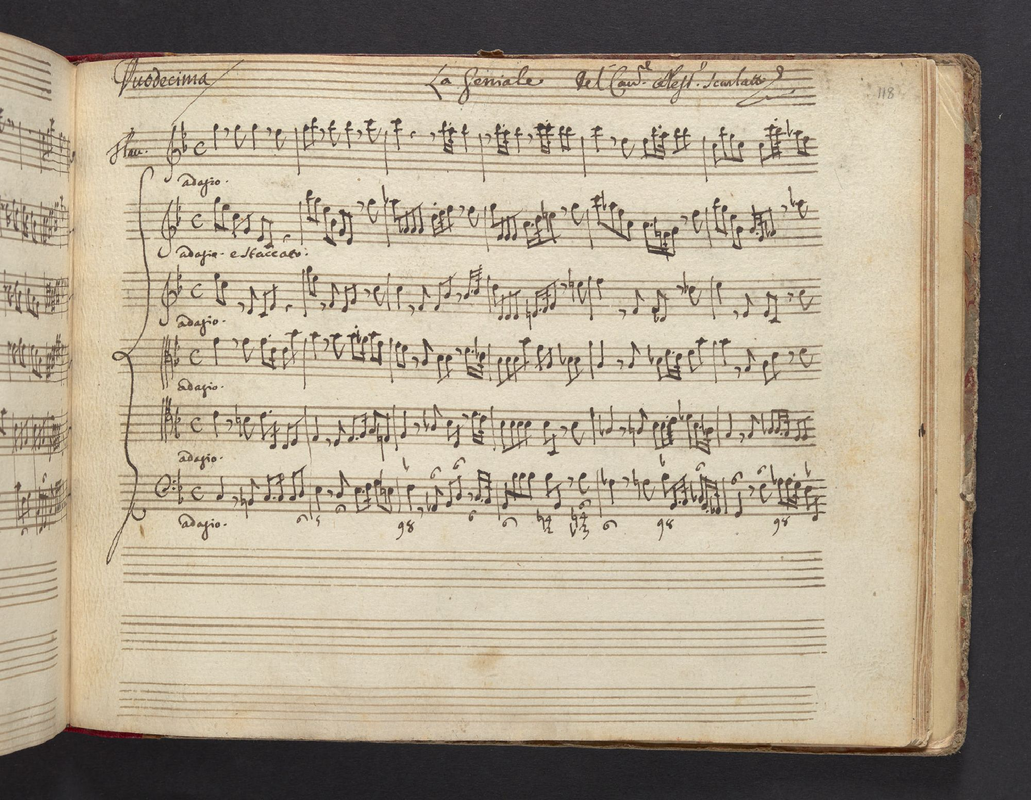 Duodecima La Geniale Del Cau.r Aless.o Scarlatti
118
Flau.
adagio.
adagio. e staccato.
adagio.
adagio.
adagio.
adagio.
6 5 98 6 6 6 6 98 6 6 98